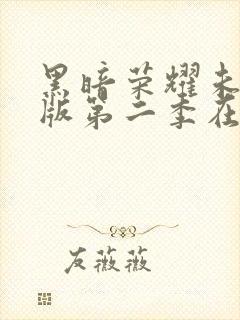 黑暗荣耀未
版第二季在
友薇薇